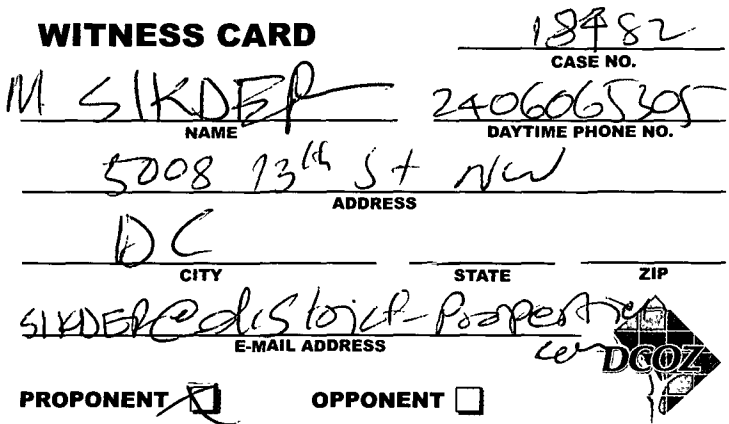 WITNESS CARD
18482
CASE NO.
M SIKDER
2406065305
NAME
DAYTIME PHONE NO.
5008 13th St NW
ADDRESS
DC
CITY
STATE
ZIP
SIKDER@district-Properties
com
E-MAIL ADDRESS
DCOZ
PROPONENT
OPPONENT